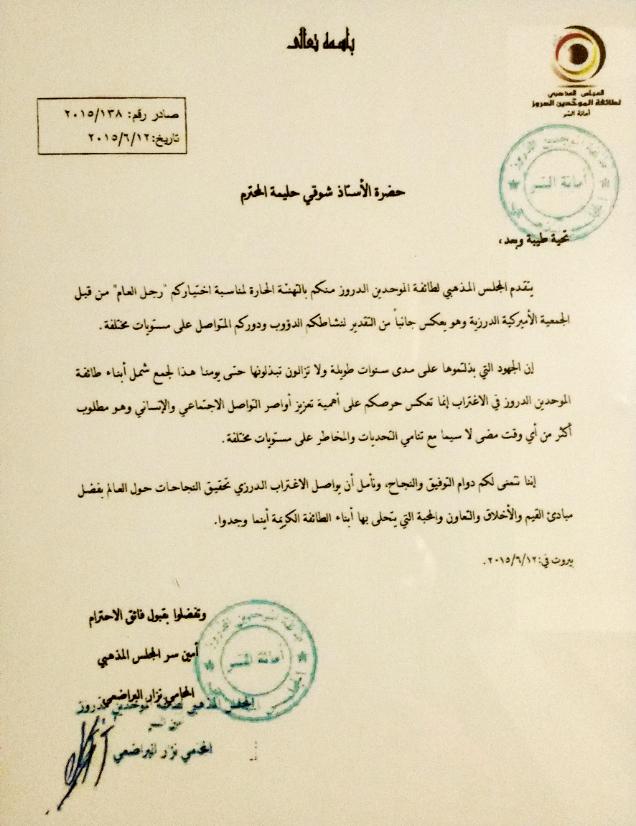 باسمه تعالى
المجلس المذهبي
لطائفة الموحّدين الدروز
أمانة السر
صادر رقم: ٢٠١٥/١٣٨
تاريخ: ٢٠١٥/٦/١٢
أمانة السر
حضرة الأستاذ شوقي حليمة المحترم
تحية طيبة وبعد،
يتقدم المجلس المذهبي لطائفة الموحدين الدروز منكم بالتهنئة الحارة لمناسبة اختياركم "رجل العام" من قبل
الجمعية الأميركية الدرزية وهو يعكس جانباً من التقدير لنشاطكم الدؤوب ودوركم المتواصل على مستويات مختلفة.
إن الجهود التي بذلتموها على مدى سنوات طويلة ولا تزالون تبذلونها حتى يومنا هذا لجمع شمل أبناء طائفة
الموحدين الدروز في الاغتراب إنما تعكس حرصكم على أهمية تعزيز أواصر التواصل الاجتماعي والإنساني وهو مطلوب
أكثر من أي وقت مضى لا سيما مع تنامي التحديات والمخاطر على مستويات مختلفة.
إننا نتمنى لكم دوام التوفيق والنجاح، ونأمل أن يواصل الاغتراب الدرزي تحقيق النجاحات حول العالم بفضل
مبادئ القيم والأخلاق والتعاون والمحبة التي يتحلى بها أبناء الطائفة الكريمة أينما وجدوا.
بيروت في: ٢٠١٥/٦/١٢.
وتفضلوا بقبول فائق الاحترام
أمين سر المجلس المذهبي
المحامي نزار البراضعي
أمانة السر
المجلس المذهبي لطائفة الموحدين الدروز
أمين السر
المحامي نزار البراضعي